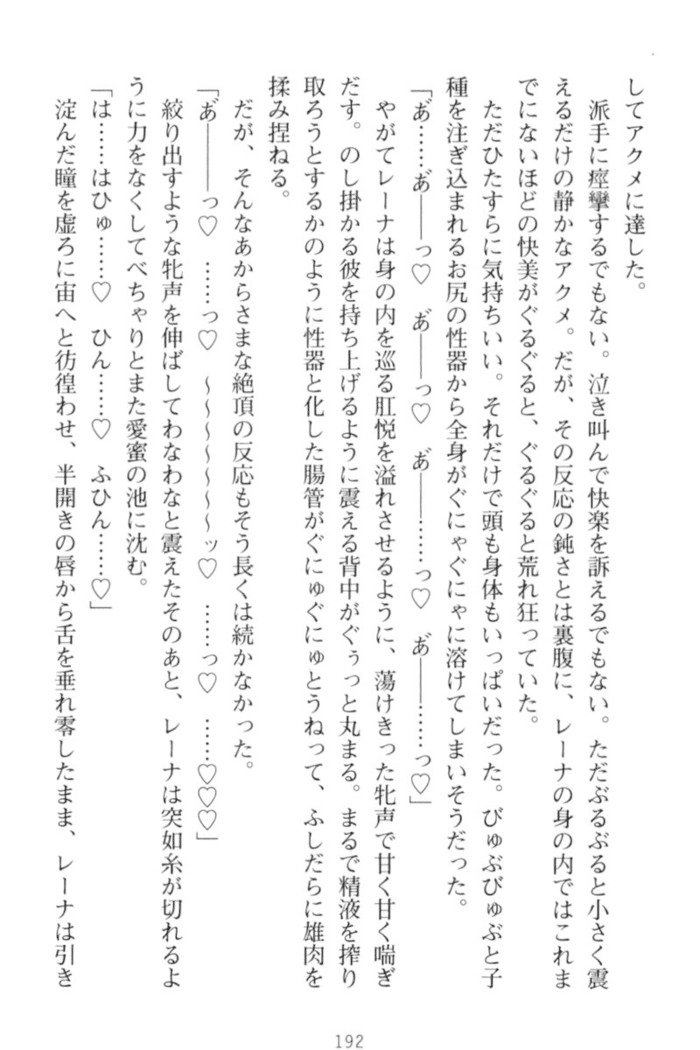 してアクメに達した。
　派手に痙攣するでもない。泣き叫んで快楽を訴えるでもない。ただぶるぶると小さく震
えるだけの静かなアクメ。だが、その反応の鈍さとは裏腹に、レーナの身の内ではこれま
でにないほどの快美がぐるぐると、ぐるぐると荒れ狂っていた。
　ただひたすらに気持ちいい。それだけで頭も身体もいっぱいだった。びゅぶびゅぶと子
種を注ぎ込まれるお尻の性器から全身がぐにゃぐにゃに溶けてしまいそうだった。
「あ゛……あ゛――っ♡　あ゛――っ♡　あ゛――……っ♡　あ゛――……っ♡」
　やがてレーナは身の内を巡る肛悦を溢れさせるように、蕩けきった牝声で甘く甘く喘ぎ
だす。のし掛かる彼を持ち上げるように震える背中がぐぅっと丸まる。まるで精液を搾り
取ろうとするかのように性器と化した腸管がぐにゅぐにゅとうねって、ふしだらに雄肉を
揉み捏ねる。
　だが、そんなあからさまな絶頂の反応もそう長くは続かなかった。
「あ゛――――っ♡　……っ♡　～～～～～～ッ♡　……っ♡　……♡♡♡」
　絞り出すような牝声を伸ばしてわなわなと震えたそのあと、レーナは突如糸が切れるよ
うに力をなくしてべちゃりとまた愛蜜の池に沈む。
「は……はひゅ……♡　ひん……♡　ふひん……♡」
　淀んだ瞳を虚ろに宙へと彷徨わせ、半開きの唇から舌を垂れ零したまま、レーナは引き
192